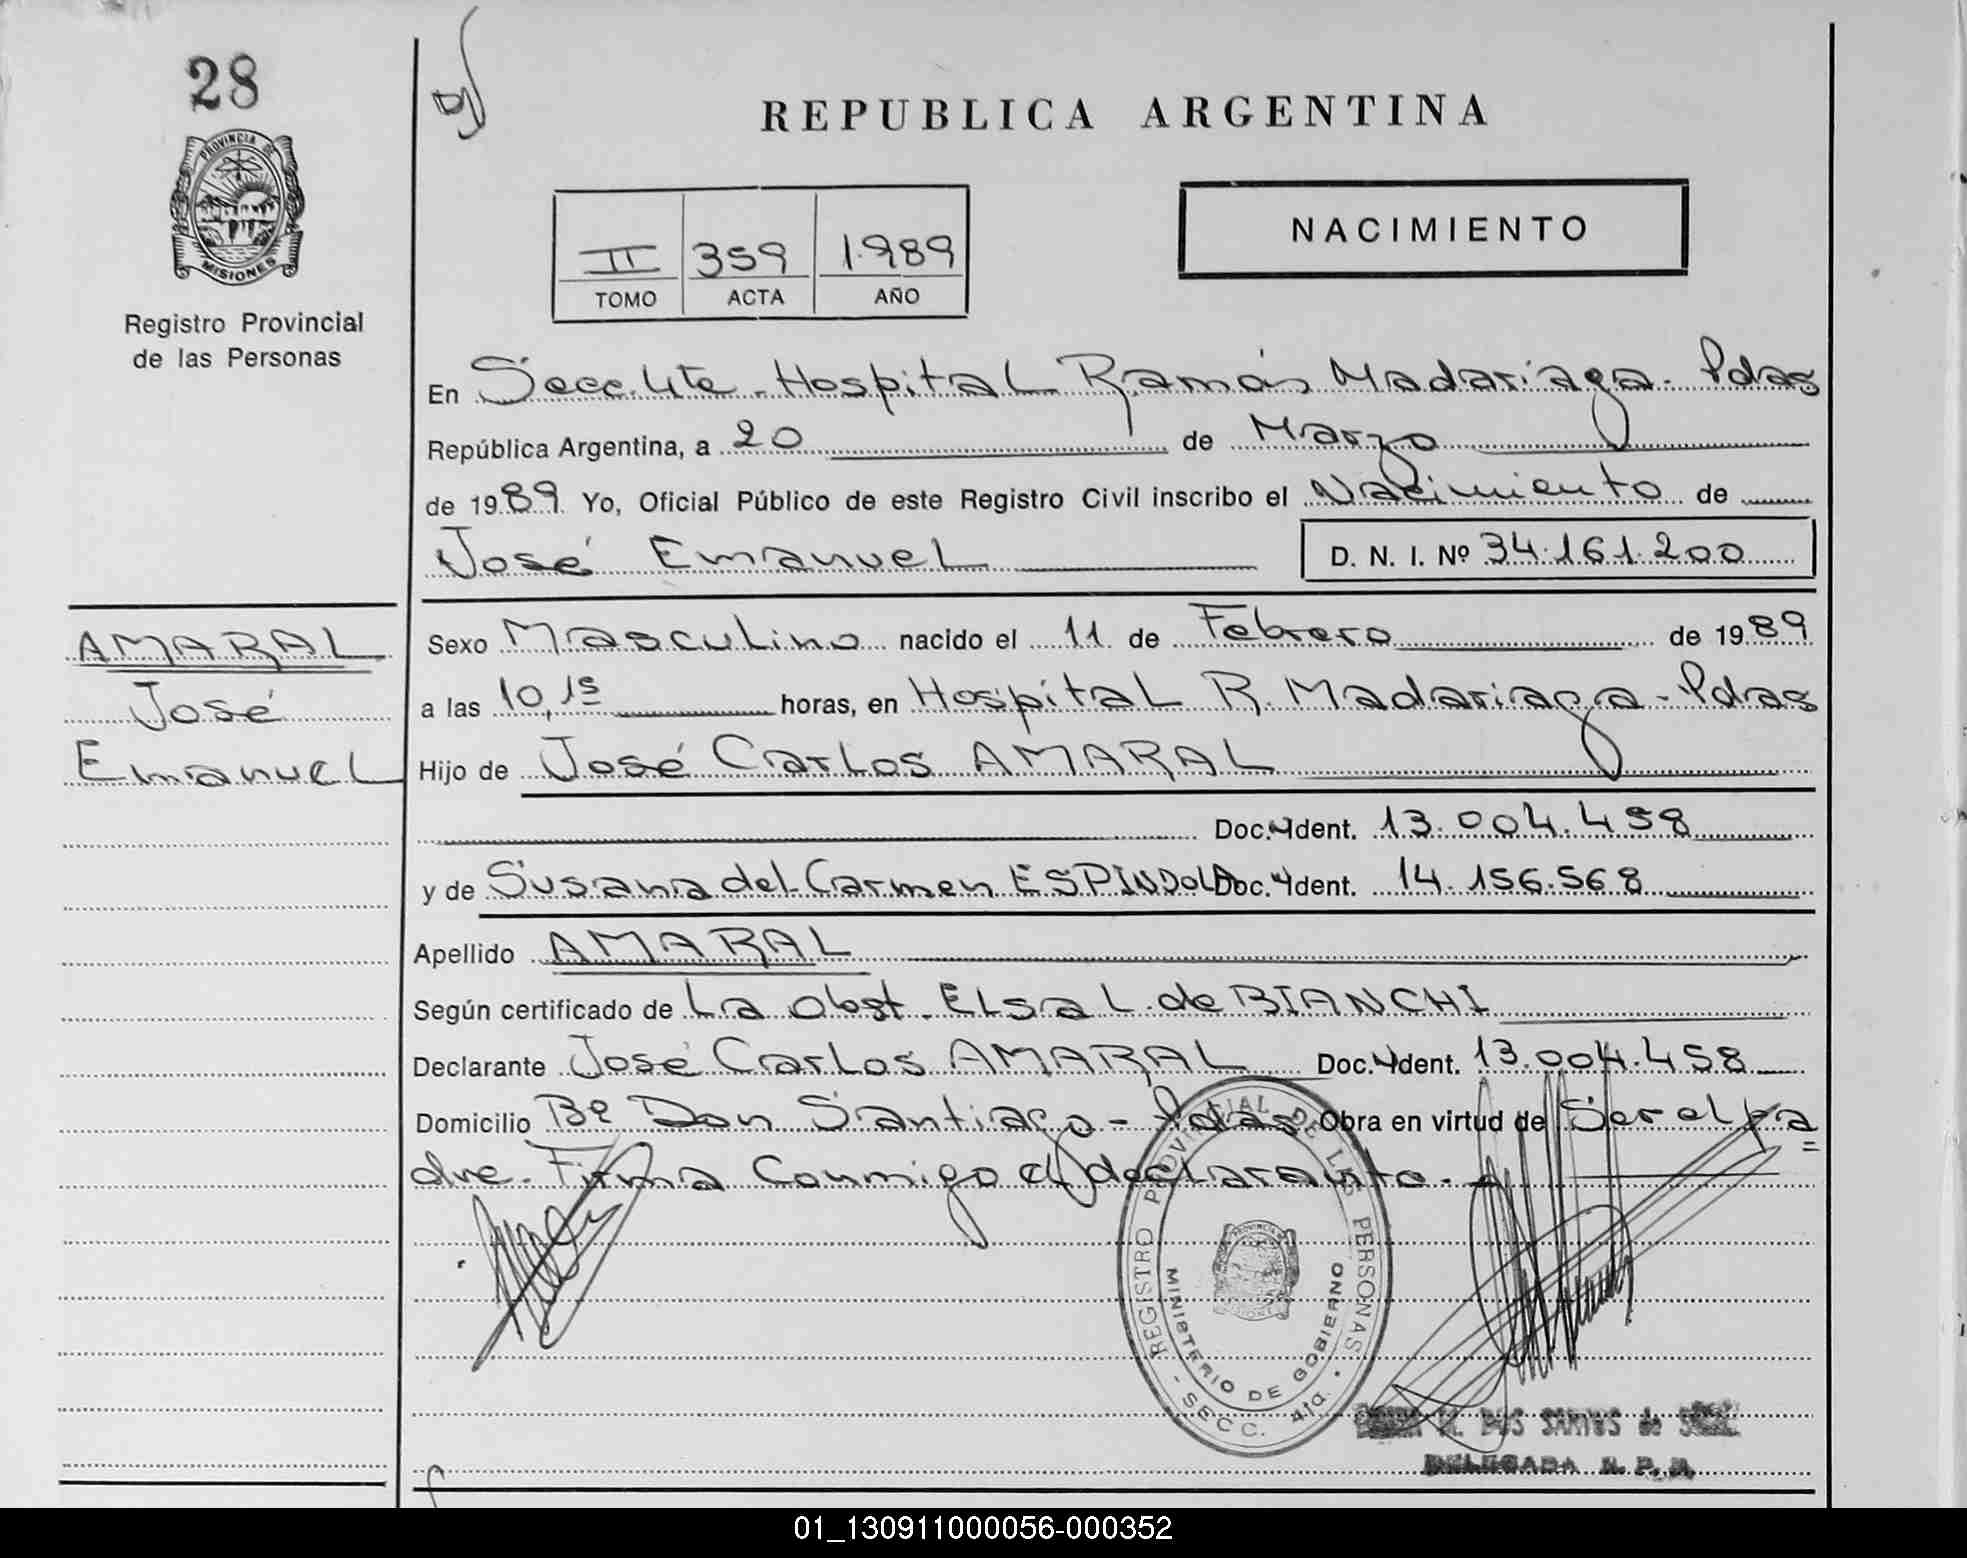 28
PROVINCIA DE
MISIONES
Registro Provincial
de las Personas
REPUBLICA ARGENTINA
II 359 1.989
TOMO ACTA AÑO
NACIMIENTO
En Secc. 4ta - Hospital Ramón Madariaga - Pdas
República Argentina, a 20 de Marzo
de 1989 Yo, Oficial Público de este Registro Civil inscribo el Nacimiento de
José Emanuel D. N. I. Nº 34.161.200
AMARAL
José
Emanuel
Sexo Masculino nacido el 11 de Febrero de 1989
a las 10,15 horas, en Hospital R. Madariaga - Pdas
Hijo de José Carlos AMARAL
Doc. Ident. 13.004.458
y de Susana del Carmen ESPINDOLA Doc. Ident. 14.156.568
Apellido AMARAL
Según certificado de La Obst. Elsa L. de BIANCHI
Declarante José Carlos AMARAL Doc. Ident. 13.004.458
Domicilio Bº Don Santiago - Pdas Obra en virtud de Ser el pa
dre. Firma conmigo el declarante.
REGISTRO PROVINCIAL DE LAS PERSONAS
MINISTERIO DE GOBIERNO
- SECC. 4ta. -
M. DOS SANTOS de
DELEGADA R. P. P.
01_130911000056-000352